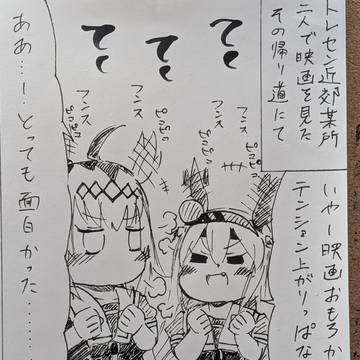 トレセン近郊某所
二人で映画を見た
その帰り道にて
いやー映画おもろか
テンション上がりっぱな
てく
てく
てく
フンス
ピコピコ
フンス
ピコピコ
フンス
ピコピコ
フンス
ピコピコ
ああ…！とっても面白かった………